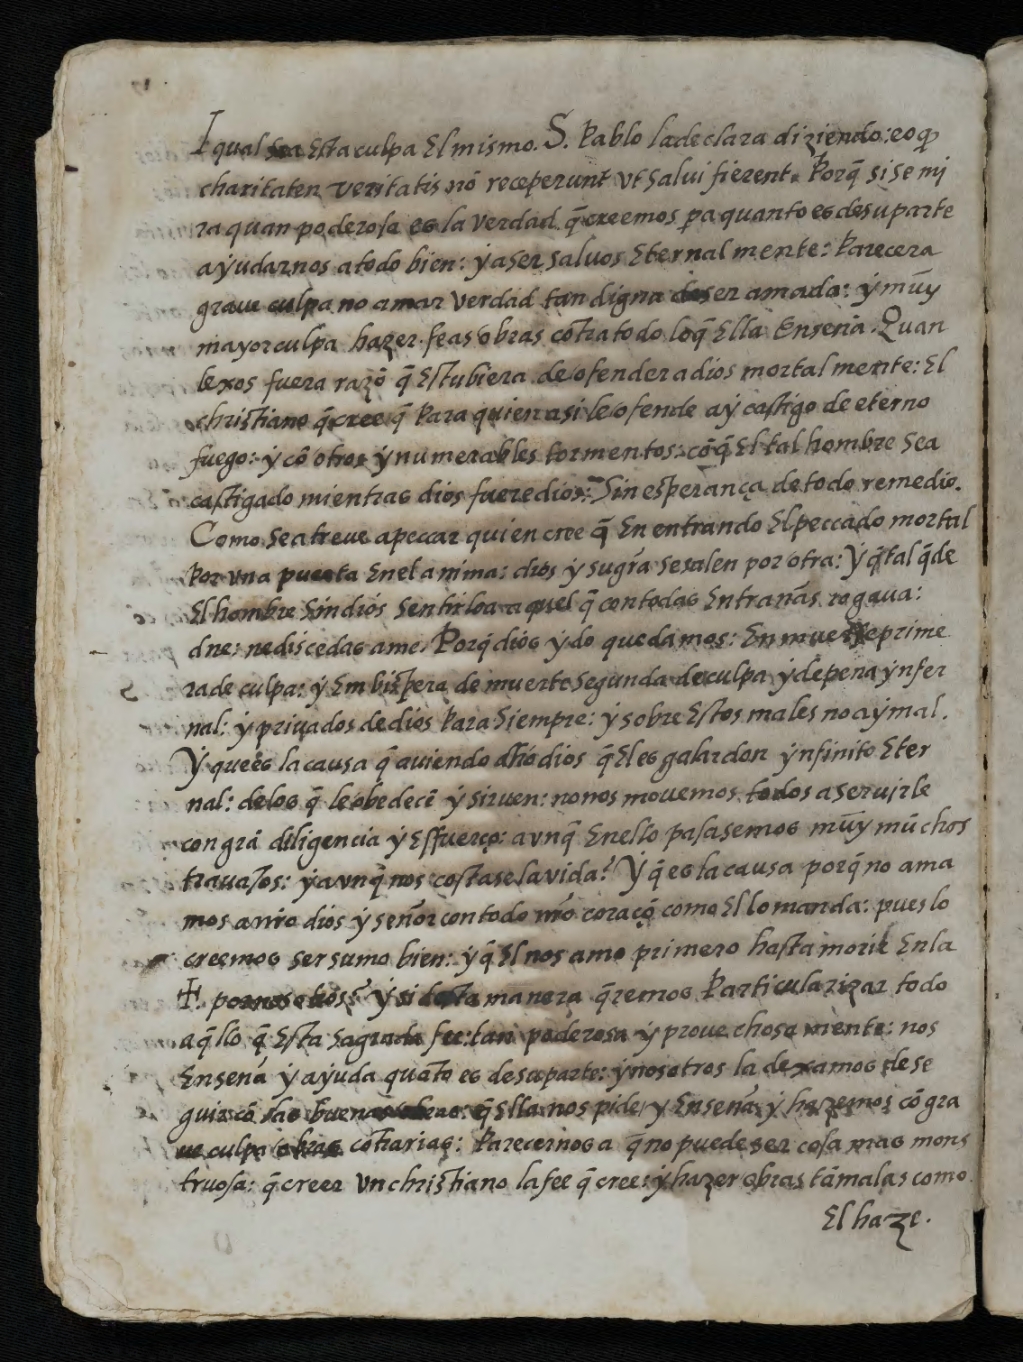 I qual sea Esta culpa El mismo. S. Pablo la declara diziendo: eo q̃
charitaten veritatis nõ receperunt vt salui fierent. Porq̃ si se mi
ra quan poderosa es la verdad q̃ creemos pa quanto es de su parte
ayudarnos a todo bien: y a ser saluos Eternal mente: Parecera
graue culpa no amar verdad tan digna de ser amada: y muy
mayor culpa hazer feas obras cõtra todo lo q̃ Ella Enseña. Quan
lexos fuera razõ q̃ Estubiera de ofender a dios mortal mente: El
christiano q̃ cree q̃ Para quien asi le ofende ay castigo de eterno
fuego: y cõ otros ynumerables tormentos: cõ q̃ El tal hombre sea
castigado mientras dios fuere dios: Sin esperança de todo remedio.
Como se atreue a peccar quien cree q̃ En entrando El peccado mortal
Por vna puerta En el anima: dios y su gr̃a se salen por otra: Y q̃ tal q̃de
El hombre Sin dios Sentialo aquel q̃ con todas Entrañas rogaua:
dne: ne discedas a me. Porq̃ dios ydo quedamos: En muerte prime
ra de culpa: y Em bispera de muerte segunda de culpa y de pena ynfer
nal: y priuados de dios Para Siempre: y sobre Estos males no ay mal.
Y que es la causa q̃ auiendo dh̃o dios q̃ El es galardon ynfinito Eter
nal: de los q̃ le obedecẽ y siruen: no nos mouemos todos a seruirle
con grã diligencia y Esfuerço: avnq̃ En ello pasasemos muy muchos
trauajos: y avnq̃ nos costase la vida? Y q̃ es la causa porq̃ no ama
mos a nr̃o dios y señor con todo nr̃o coraçõ como El lo manda: pues lo
creemos ser sumo bien: y q̃ El nos amo primero hasta morir En la
✝. por nosotros? Y si desta manera q̃remos Particularizar todo
aq̃llo q̃ Esta sagrada fee: tan poderosa y prouechosa mente: nos
Enseña y ayuda quãto es de su parte: y nosotros la dexamos de se
guir cõ las buenas obras: q̃ Ella nos pide y Enseña, y hazemos cõ gra
ue culpa obras cõtrarias: Parecernos a q̃ no puede ser cosa mas mons
truosa: q̃ creer vn christiano la fee q̃ cree: y hazer obras tã malas como
El haze.